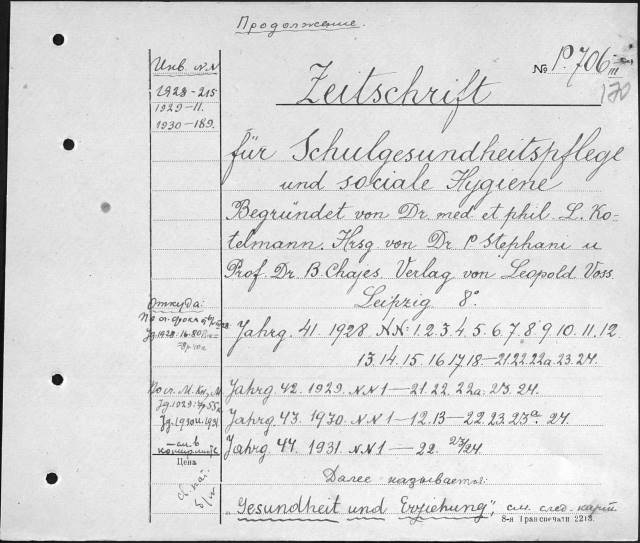 Продолжение.
Инв. N.N.
1928-215
1929-11.
1930-189.
№ P.706
III
170
Zeitschrift
für Schulgesundheitspflege
und sociale Hygiene
Begründet von Dr. med et phil. L. Ko-
telmann. Hrsg. von Dr P Stephani u
Prof. Dr. B. Chajes. Verlag von Leopold Voss.
Leipzig 8°.
Откуда:
Jahrg. 41. 1928 NN: 1.2.3.4.5.6.7.8.9.10.11.12
13.14.15.16.17.18.-21.22.22a.23.24.
Jahrg 42. 1929. NN1-21.22.22a.23.24.
Jahrg. 43. 1930. NN1-12.13-22.23.23a. 24.
Jg.1930 и.1931
Jahrg 44. 1931. NN1-22. 23/24
Цена
Далее называетъ:
"Gesundheit und Erziehung", см. след. карт
8-я Гранспечати 2213.